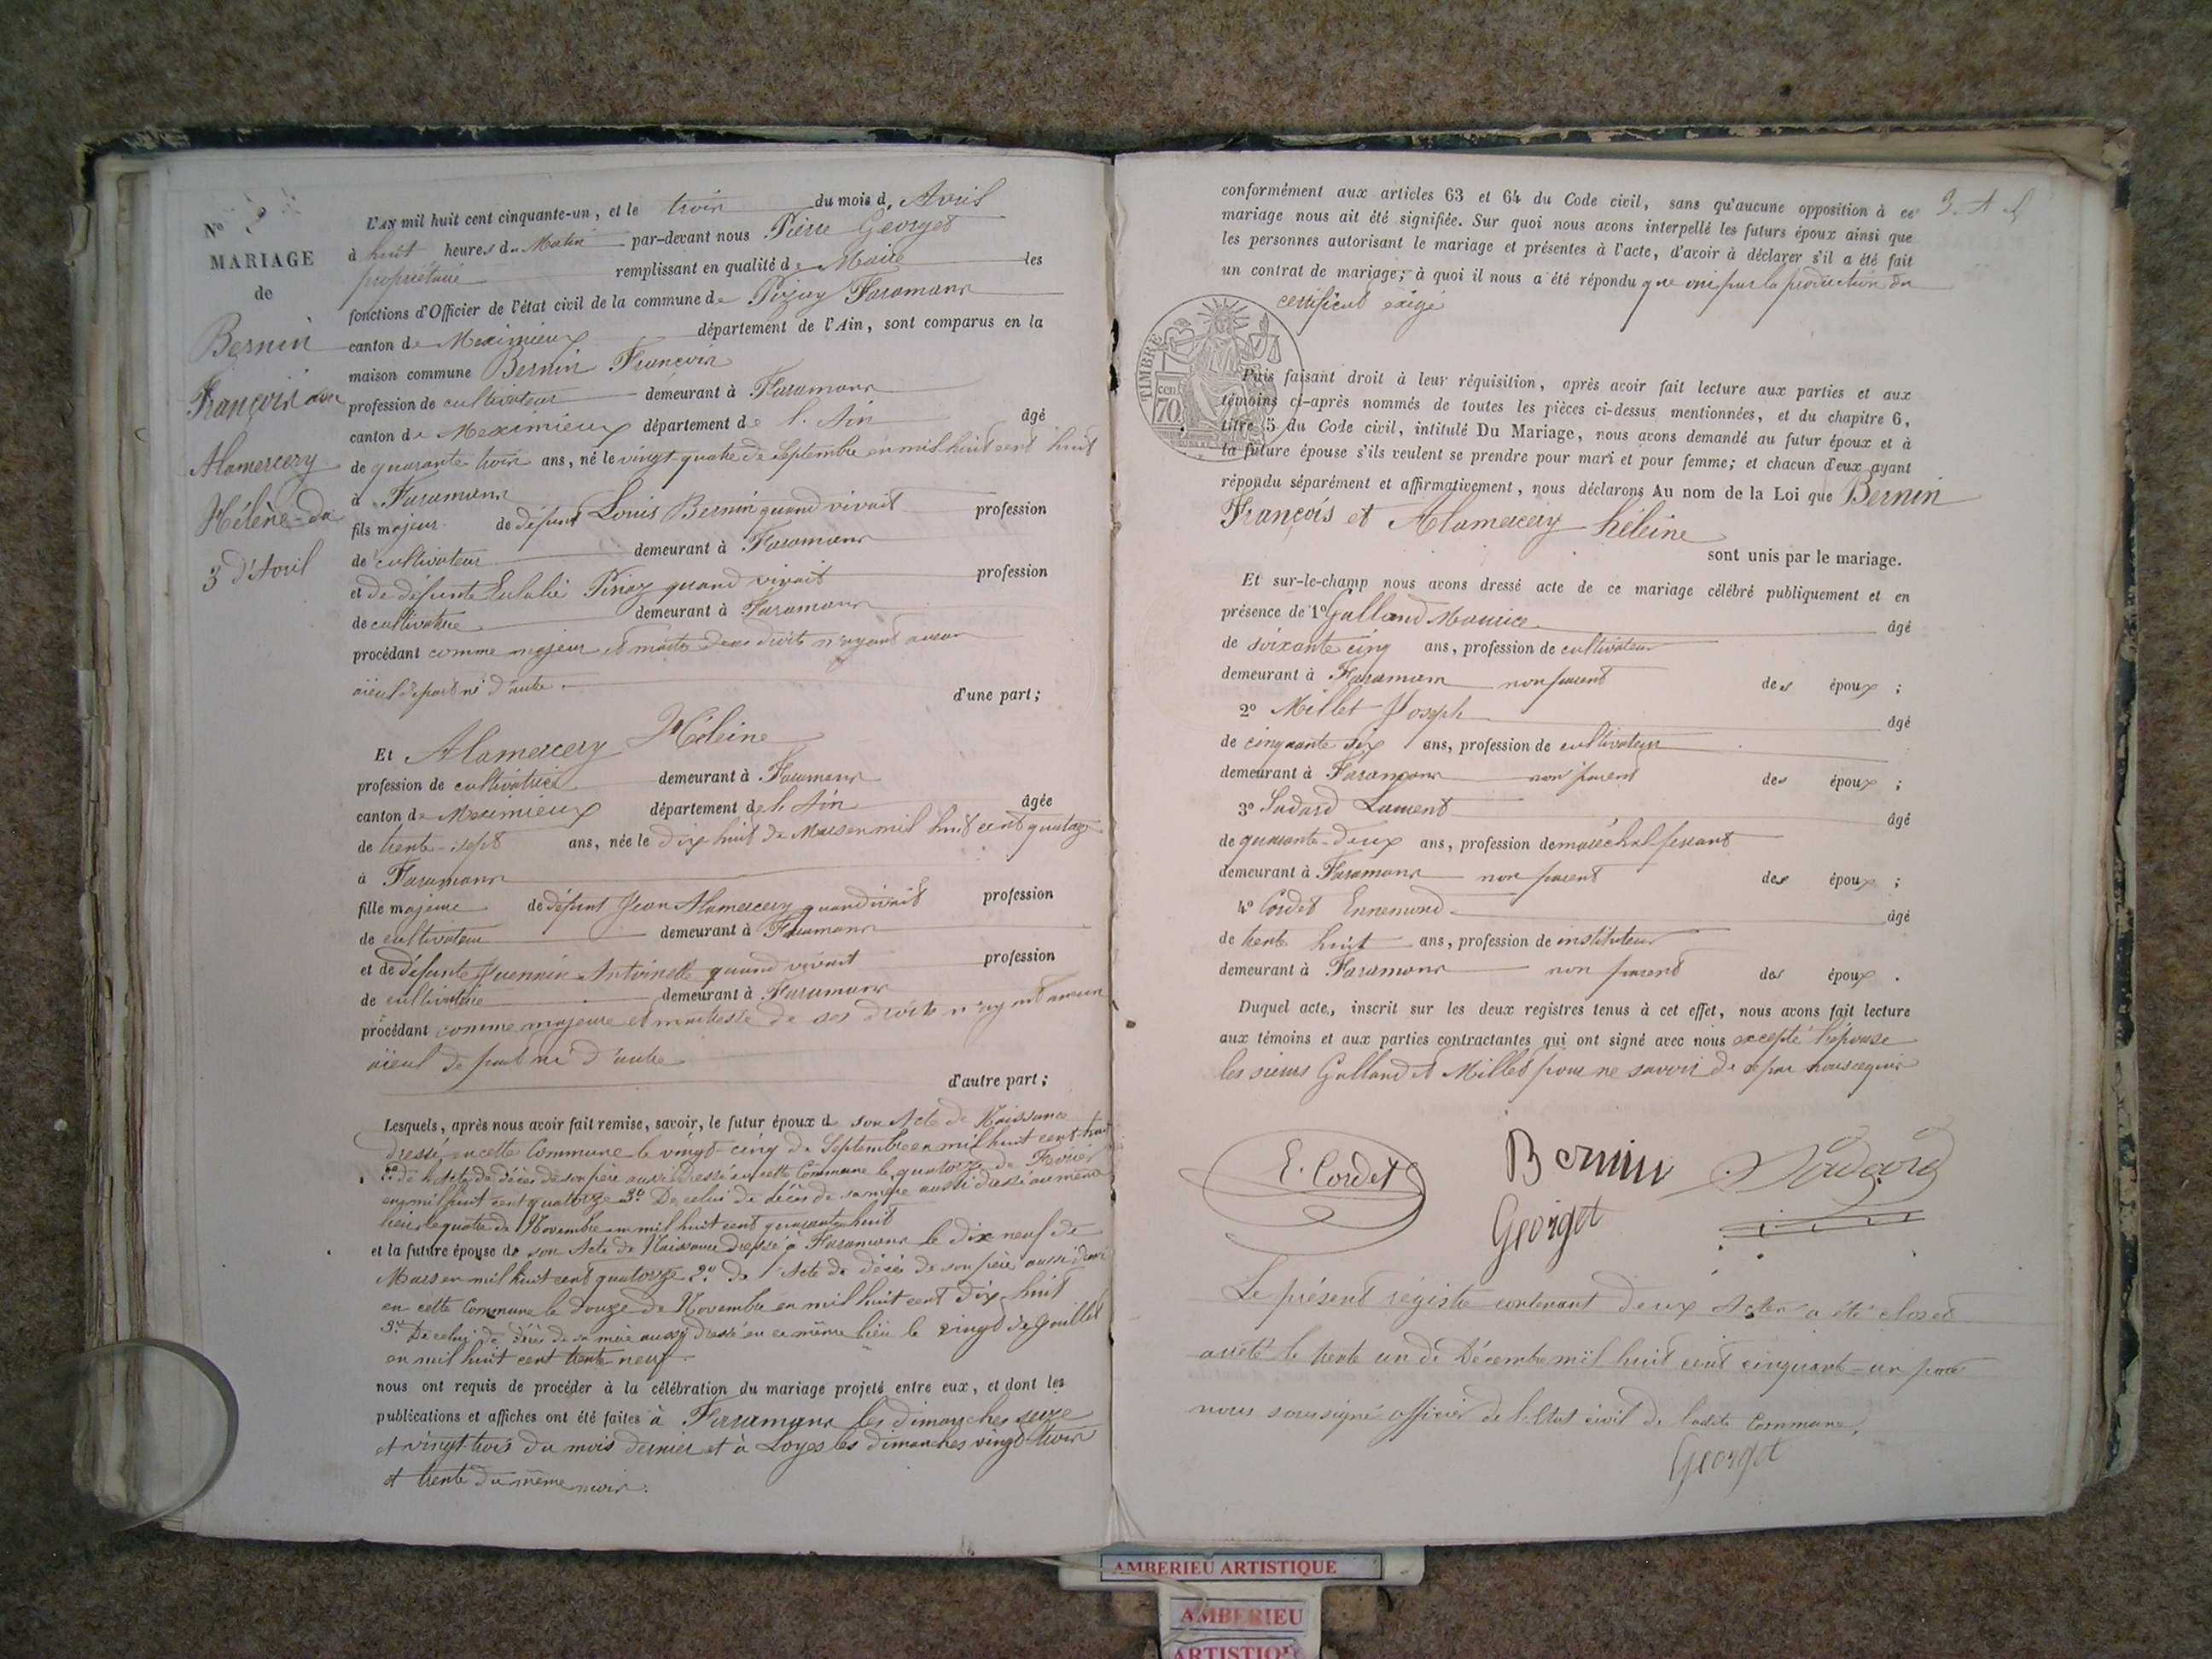 N°
MARIAGE
de
Bernin
François avec
Alamercery
Hélène du
3 d'Avril
L'AN mil huit cent cinquante-un, et le trois du mois d. Avril
à huit heures du Matin par-devant nous Pierre Georget
propriétaire remplissant en qualité de Maire les
fonctions d'Officier de l'état civil de la commune de Pizay Faramans
canton de Meximieux département de l'Ain, sont comparus en la
maison commune Bernin François
profession de cultivateur demeurant à Faramans
canton de Meximieux département de l'Ain âgé
de quarante trois ans, né le vingt quatre de Septembre en mil huit cent huit
à Faramans
fils majeur de défunt Louis Bernin quand vivait profession
de cultivateur demeurant à Faramans
et de défunte Eulalie Pinaz quand vivait profession
de cultivatrice demeurant à Faramans
procédant comme majeur et maître de ses droits n'ayant aucun
aïeul de part ni d'autre.
d'une part;
Et Alamercery Héleine
profession de cultivatrice demeurant à Faramans
canton de Meximieux département de l'Ain âgée
de trente-sept ans, née le dix huit de Mars en mil huit cent quatorze
à Faramans
fille majeure de défunt Jean Alamercery quand vivait profession
de cultivateur demeurant à Faramans
et de défunte Antoinette quand vivait profession
de cultivatrice demeurant à Faramans
procédant comme majeure et maîtresse de ses droits n'ayant aucun
aïeul de part ni d'autre
d'autre part;
Lesquels, après nous avoir fait remise, savoir, le futur époux de son Acte de Naissance
dressé en cette Commune le vingt-cinq de Septembre en mil huit cent huit
2° de l'Acte de décès de son père aussi dressé en cette Commune le quatorze de Février
en mil huit cent quatorze 3° De celui de décès de sa mère aussi dressé au même
lieu le quatre de Novembre en mil huit cent quarante huit
et la future épouse de son Acte de Naissance dressé à Faramans le dix neuf de
Mars en mil huit cent quatorze 2° de l'Acte de décès de son père aussi dressé
en cette Commune le douze de Novembre en mil huit cent dix huit
3° De celui de décès de sa mère aussi dressé en ce même lieu le vingt de Jouillet
en mil huit cent trente neuf
nous ont requis de procéder à la célébration du mariage projeté entre eux, et dont les
publications et affiches ont été faites à Faramans les dimanches seize
et vingt-trois du mois dernier et à Loyes les dimanches vingt-trois
et trente du même mois.
conformément aux articles 63 et 64 du Code civil, sans qu'aucune opposition à ce
mariage nous ait été signifiée. Sur quoi nous avons interpellé les futurs époux ainsi que
les personnes autorisant le mariage et présentes à l'acte, d'avoir à déclarer s'il a été fait
un contrat de mariage; à quoi il nous a été répondu que oui par la production du
certificat exigé
TIMBRE
70 cen
Puis faisant droit à leur réquisition, après avoir fait lecture aux parties et aux
témoins ci-après nommés de toutes les pièces ci-dessus mentionnées, et du chapitre 6,
titre 5 du Code civil, intitulé Du Mariage, nous avons demandé au futur époux et à
la future épouse s'ils veulent se prendre pour mari et pour femme; et chacun d'eux ayant
répondu séparément et affirmativement, nous déclarons Au nom de la Loi que Bernin
François et Alamercery héleine
sont unis par le mariage.
Et sur-le-champ nous avons dressé acte de ce mariage célébré publiquement et en
présence de 1° Galland Maurice âgé
de soixante cinq ans, profession de cultivateur
demeurant à Faramans non parent des époux ;
2° Millet Joseph âgé
de cinquante six ans, profession de cultivateur
demeurant à Faramans non parent des époux ;
3° Sadard Laurent âgé
de quarante-deux ans, profession de maréchal ferrant
demeurant à Faramans non parent des époux ;
4° Cordet Ennemond âgé
de trente huit ans, profession de instituteur
demeurant à Faramans non parent des époux .
Duquel acte, inscrit sur les deux registres tenus à cet effet, nous avons fait lecture
aux témoins et aux parties contractantes qui ont signé avec nous excepté l'épouse
les sieurs Galland et Millet pour ne savoir de ce par nous requis
E. Cordet Bernin Sadard
Georget
Le présent régistre contenant deux Actes a été clos et
arrêté le trente un de Décembre mil huit cent cinquante-un par
nous soussigné officier de l'Etat civil de ladite Commune,
Georget
AMBERIEU ARTISTIQUE
AMBERIEU
ARTISTIQUE